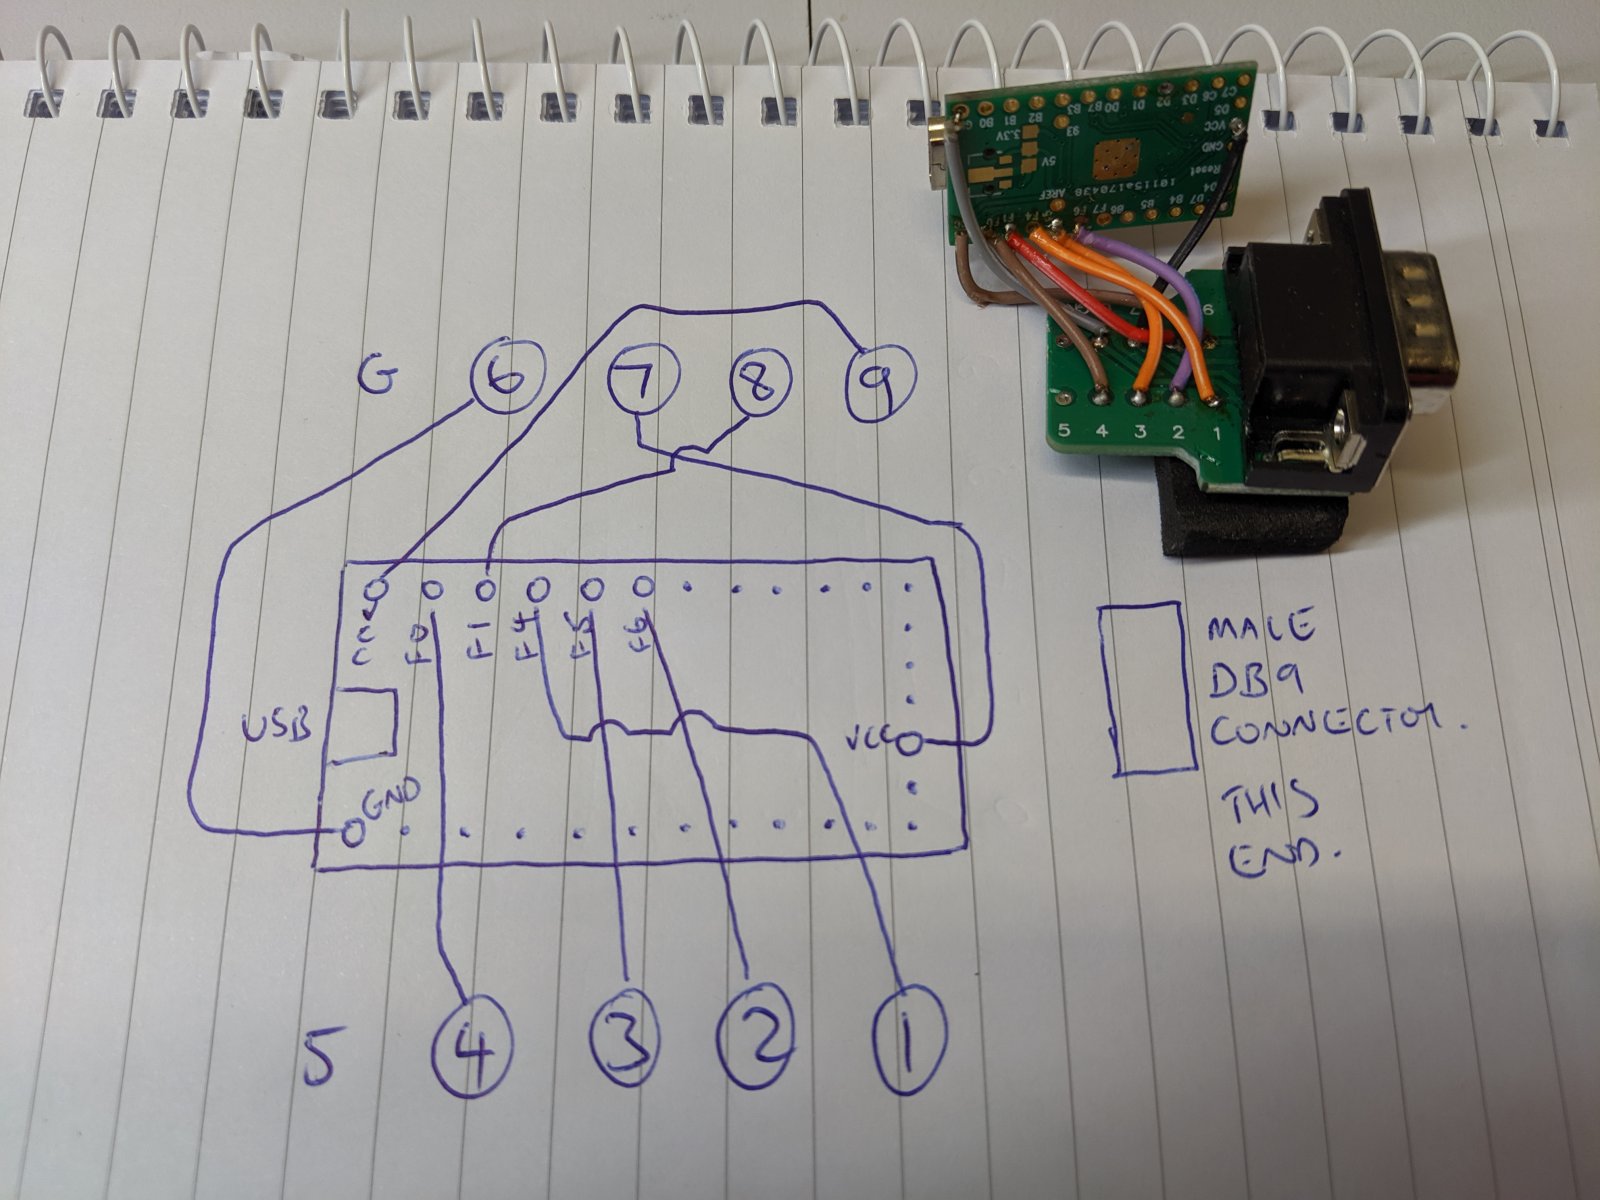 G 6 7 8 9
F0 F1 F4 F5 F6
USB
VCC
GND
5 4 3 2 1
MALE
DB9
CONNECTOR.
THIS
END.
B0 B1 B2 B3 B7 D0 D1 D2 D3 C6 C7
D5
VCC
GND
Reset
D4
3.3V
5V
AREF
10115a170438
F1 F4 F6 F7 B6 B5 B4 D7
7 6
5 4 3 2 1